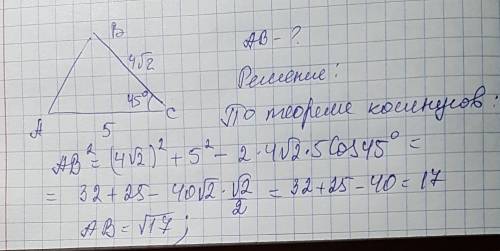 B
AB - ?
4√2
Решение:
45°
C
По теореме косинусов:
A
5
AB² = (4√2)² + 5² - 2·4√2·5 Cos45° =
= 32 + 25 - 40√2 · √2/2 = 32 + 25 - 40 = 17
AB = √17;